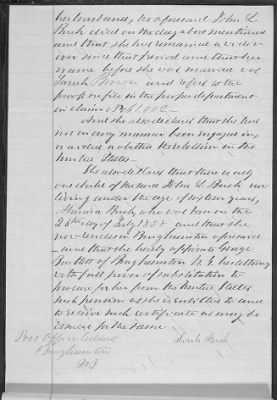 her husband, the aforesaid John L
Bush died on the day above mentioned
and that she has remained a widow
ever since that period and that her
name before she was married was
Sarah Brown and refers to the
proof on file in the proper department
in claim No
And she also declares that she has
not in any manner been engaged in,
or aided or abetted the rebellion in the
United States.
She also declares that there is only
one child of her said John L Bush now
living under the age of sixteen years,
Bush, who was born on the
26th day of July 1858 and that she
now resides in Binghamton aforesaid
and that she hereby appoints George
Bartlett of Binghamton N.Y. her attorney
with full power of substitution to
procure for her from the United States
such pension as she is entitled to and
to receive such certificate as may be
issued for the same
Post Office address
Sarah Bush
Binghamton
N.Y.